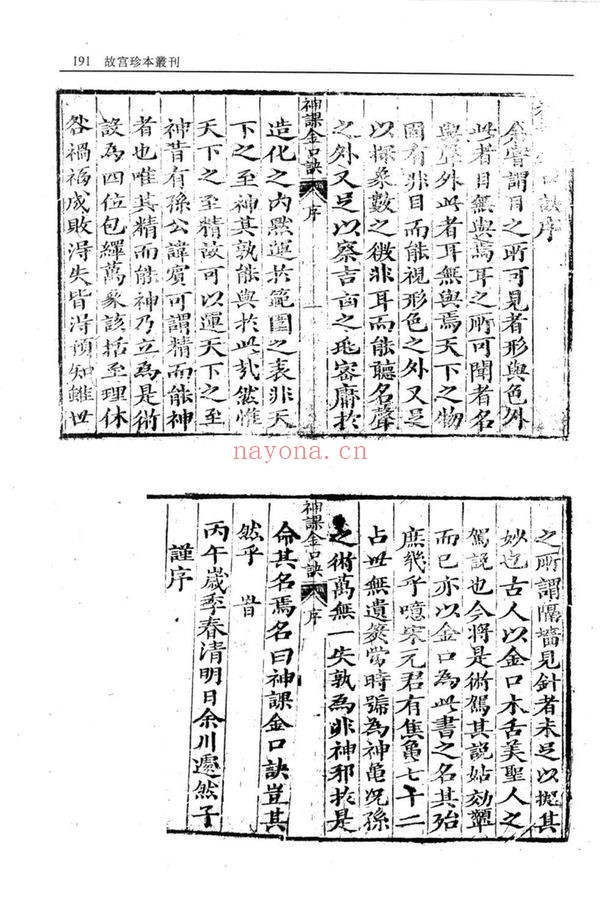 191 故宫珍本叢刊
神課金口訣序
余嘗謂目之所可見者形與色外
此者目無與焉耳之所可聞者名
與聲外此者耳無與焉天下之物
固有非目而能視形色之外又足
以探象數之微非耳而能聽名聲
之外又足以察吉凶之兆密庸於
神課金口訣 序 一
造化之内默運於範圍之表非天
下之至神其孰能與於此哉然惟
天下之至精故可以運天下之至
神昔有孫公諱賓可謂精而能神
者也唯其精而能神乃立為是術
設為四位包繹萬象該括至理休
咎禍福成敗得失皆得預知雖世
nayona.cn
之所謂隔墻見針者未足以擬其
妙迄古人以金口木舌美聖人之
駕說也今將是術駕其說姑効顰
而已亦以金口為此書之名其殆
庶幾乎噫宋元君有焦龜七十二
占世無遺筴當時號為神龜况孫
之術萬無一失孰為非神邪於是
神課金口訣 序
命其名焉名曰神課金口訣豈其
然乎 旹
丙午歲季春清明日余川遯然子
謹序